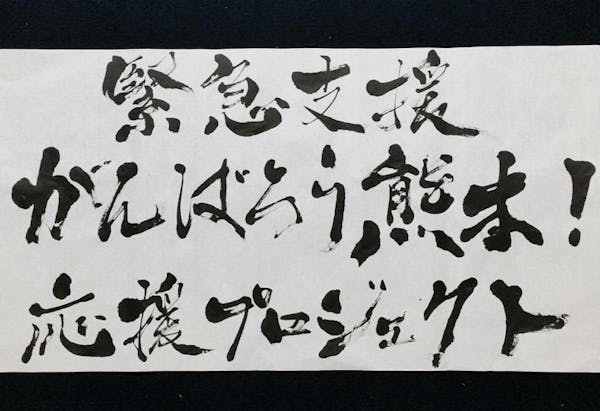 緊急支援
がんばろう熊本!
応援プロジェクト